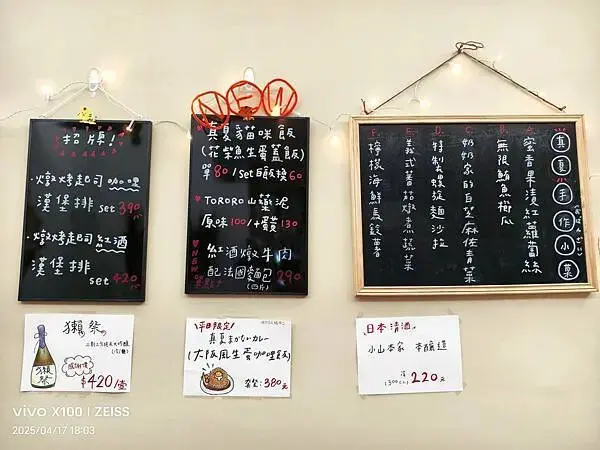 招牌!
・燉烤起司咖哩
漢堡排 set 390元
・燉烤起司紅酒
漢堡排 set 420元
NEW
真夏貓咪飯
(花柴魚生蛋蓋飯)
單80/set白飯換60
♥ TORORO山藥泥
原味100/+蛋130
♥ 紅酒燉牛肉
NEW
配法國麵包 290
(四片)
真夏手作小菜
(おばんざい)
A. 蜜香果漬紅蘿蔔絲
B. 無限鮪魚櫛瓜
C. 奶奶家的白芝麻佐青菜
D. 特製螺旋麵沙拉
E. 義式蕃茄燉煮蔬菜
F. 檸檬海鮮馬鈴薯
獺祭
獺祭
感謝價
$420/壺
平日限定!
真夏まかないカレー
(大阪風生蛋咖哩飯)
套餐:380元
日本清酒
小山本家 本釀造
冷
(300ml) 220元
vivo X100 | ZEISS
2025/04/17 18:03